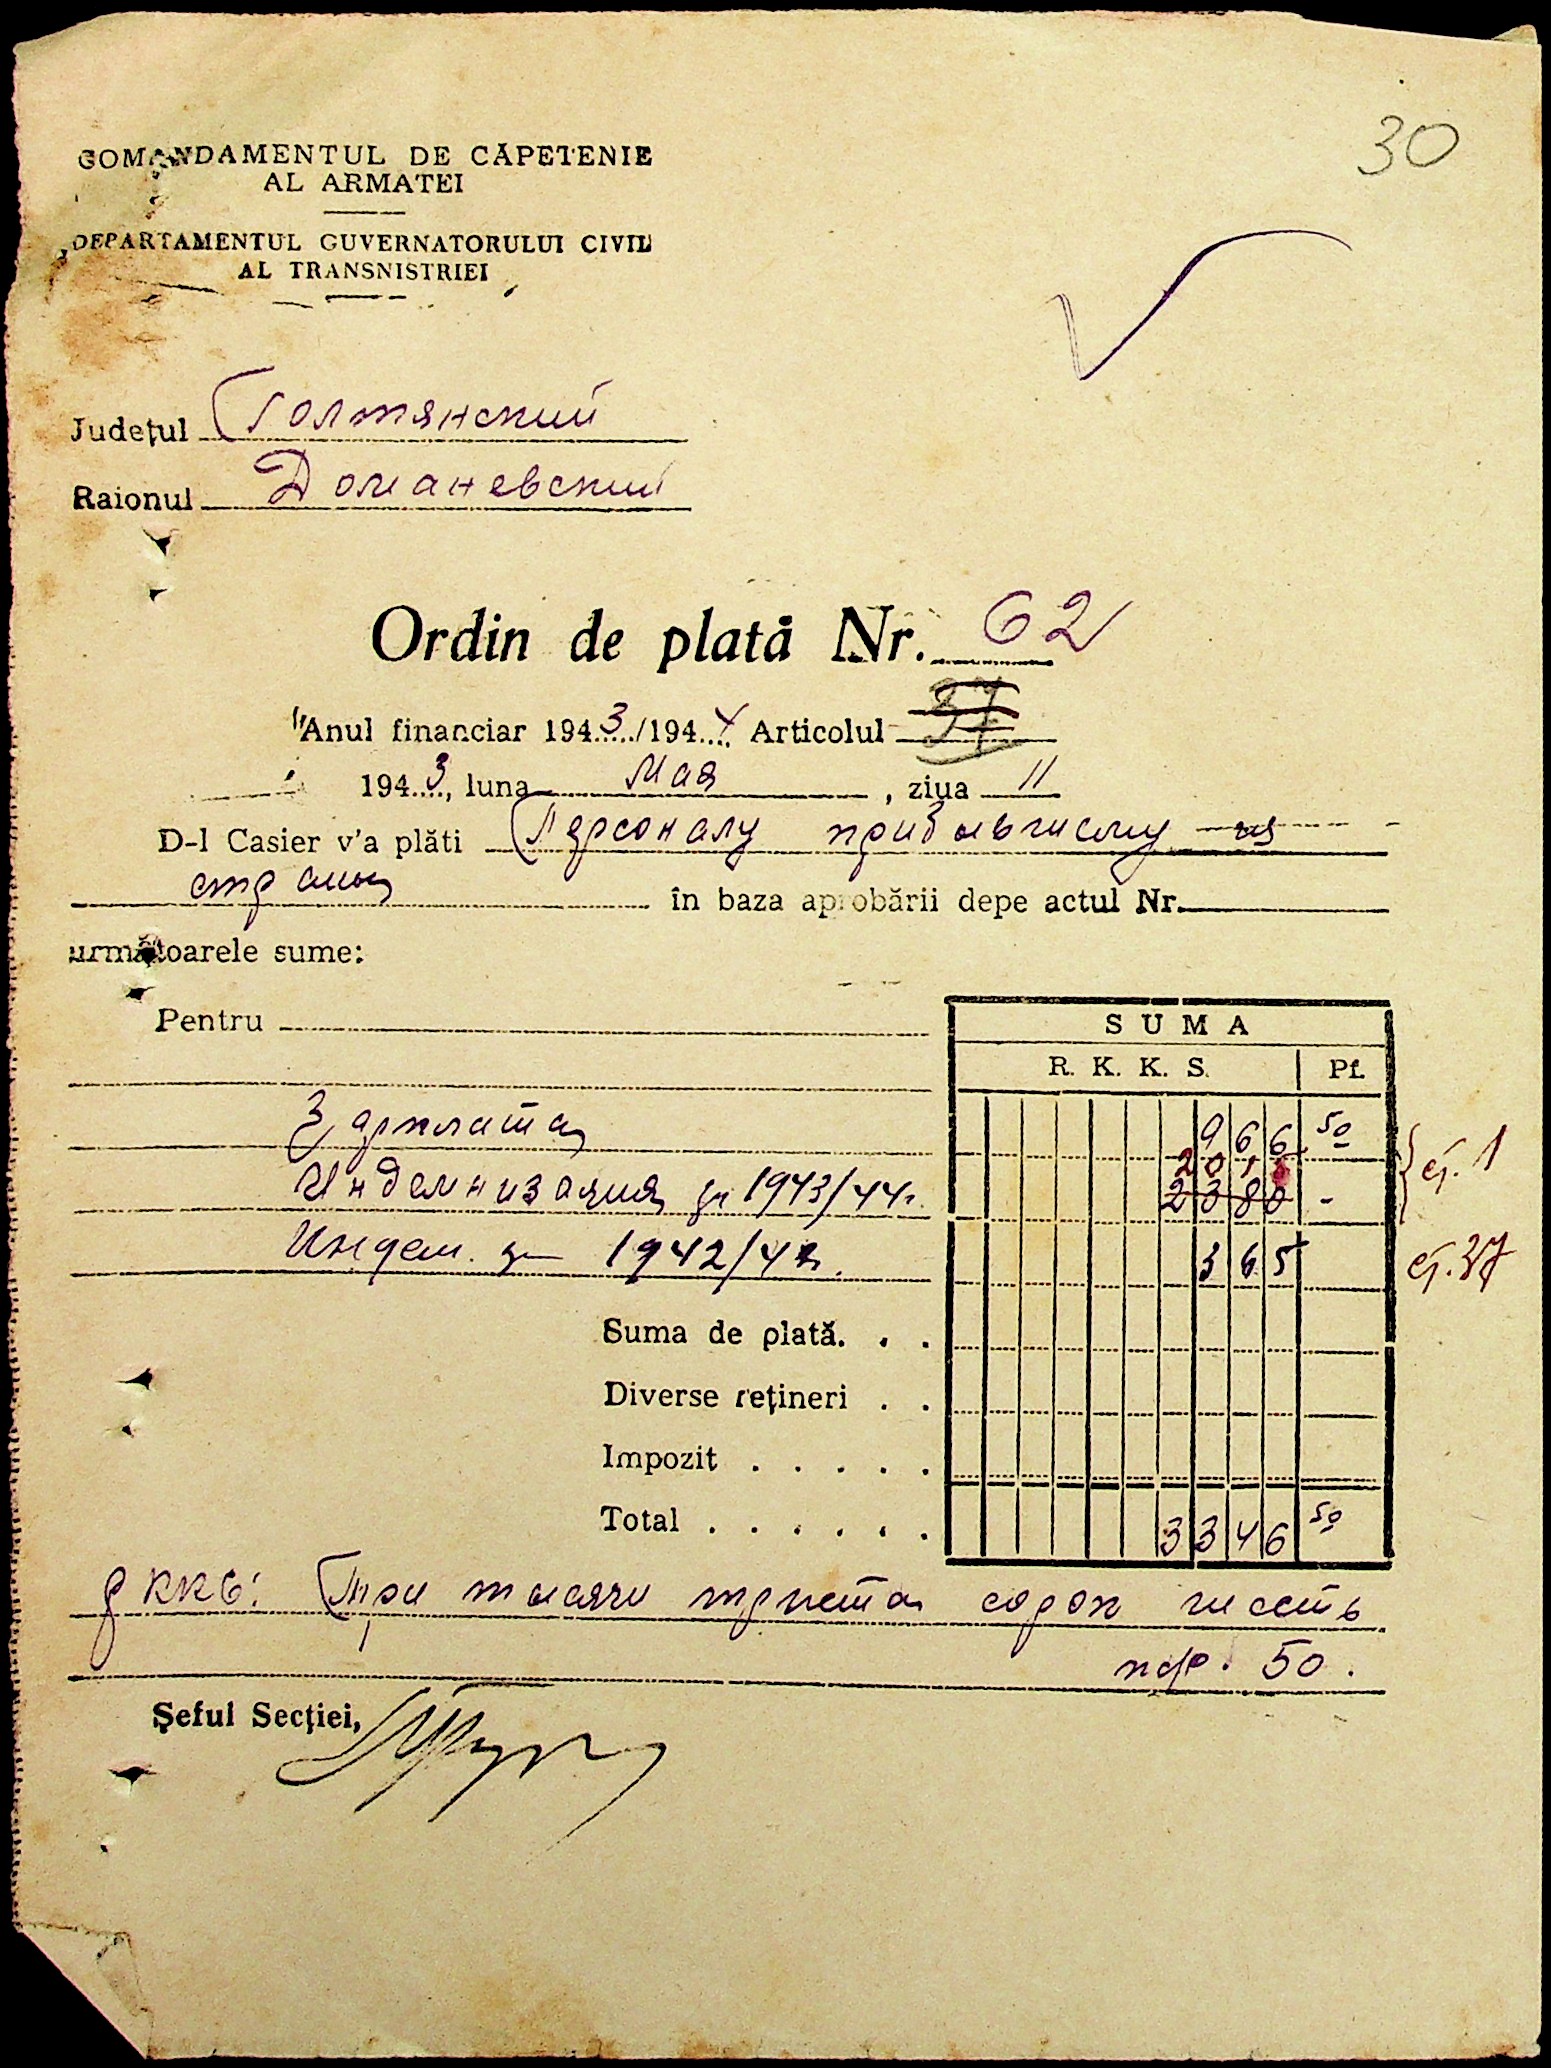 30
COMANDAMENTUL DE CĂPETENIE
AL ARMATEI
DEPARTAMENTUL GUVERNATORULUI CIVIL
AL TRANSNISTRIEI
Județul Голтянский
Raionul Доманевский
Ordin de plată Nr. 62
Anul financiar 1943/1944 Articolul 37
1943, luna Мая, ziua 11
D-l Casier v'a plăti Персоналу прибывшему из
страны în baza aprobării depe actul Nr.
următoarele sume:
Pentru
SUMA
R. K. K. S. Pf.
Зарплата 966 50
2015
ст. 1
Индемнизация за 1943/44г. 2380 -
Индем. за 1942/43. 365
ст. 37
Suma de plată. . .
Diverse rețineri . .
Impozit . . . . .
Total . . . . . . 3346 50
РККС: Три тысячи триста сорок шесть
пф. 50.
Șeful Secției,